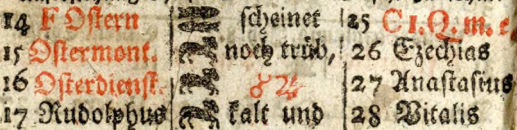 14 F Ostern scheinet 25 C 1. Q. m.
15 Ostermont. noch trüb, 26 Ezechias
16 Osterdienst. 27 Anastasius
17 Rudolphus kalt und 28 Vitalis